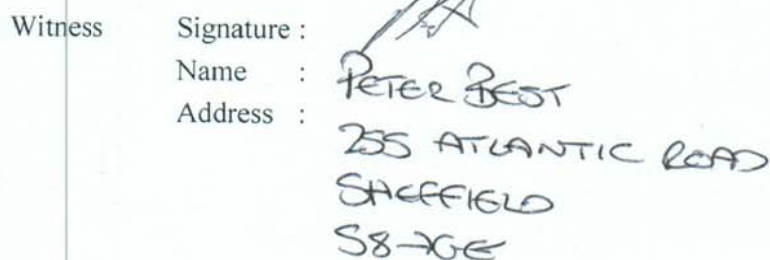 Witness Signature :
Name : PETER BEST
Address :
255 ATLANTIC ROAD
SHEFFIELD
S8 7GE